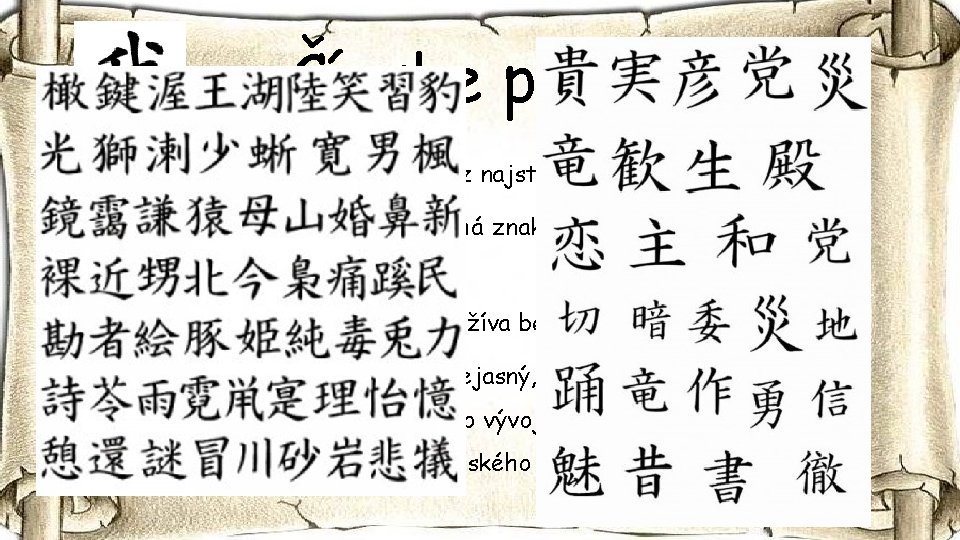 橄鍵渥王湖陸笑習豹
光獅溂少蜥寛男楓
鏡靄謙猿母山婚鼻新
裸近甥北今梟痛蹊民
勘者絵豚姫純毒兎力
詩苓雨霓鼡寔理怡憶
憩還謎冒川砂岩悲犠
e p
z najst
má znak
žíva be
ejasný,
o vývoj
ského
貴実彦党災
竜歓生殿
恋主和党
切暗委災地
踊竜作勇信
魅昔書徹